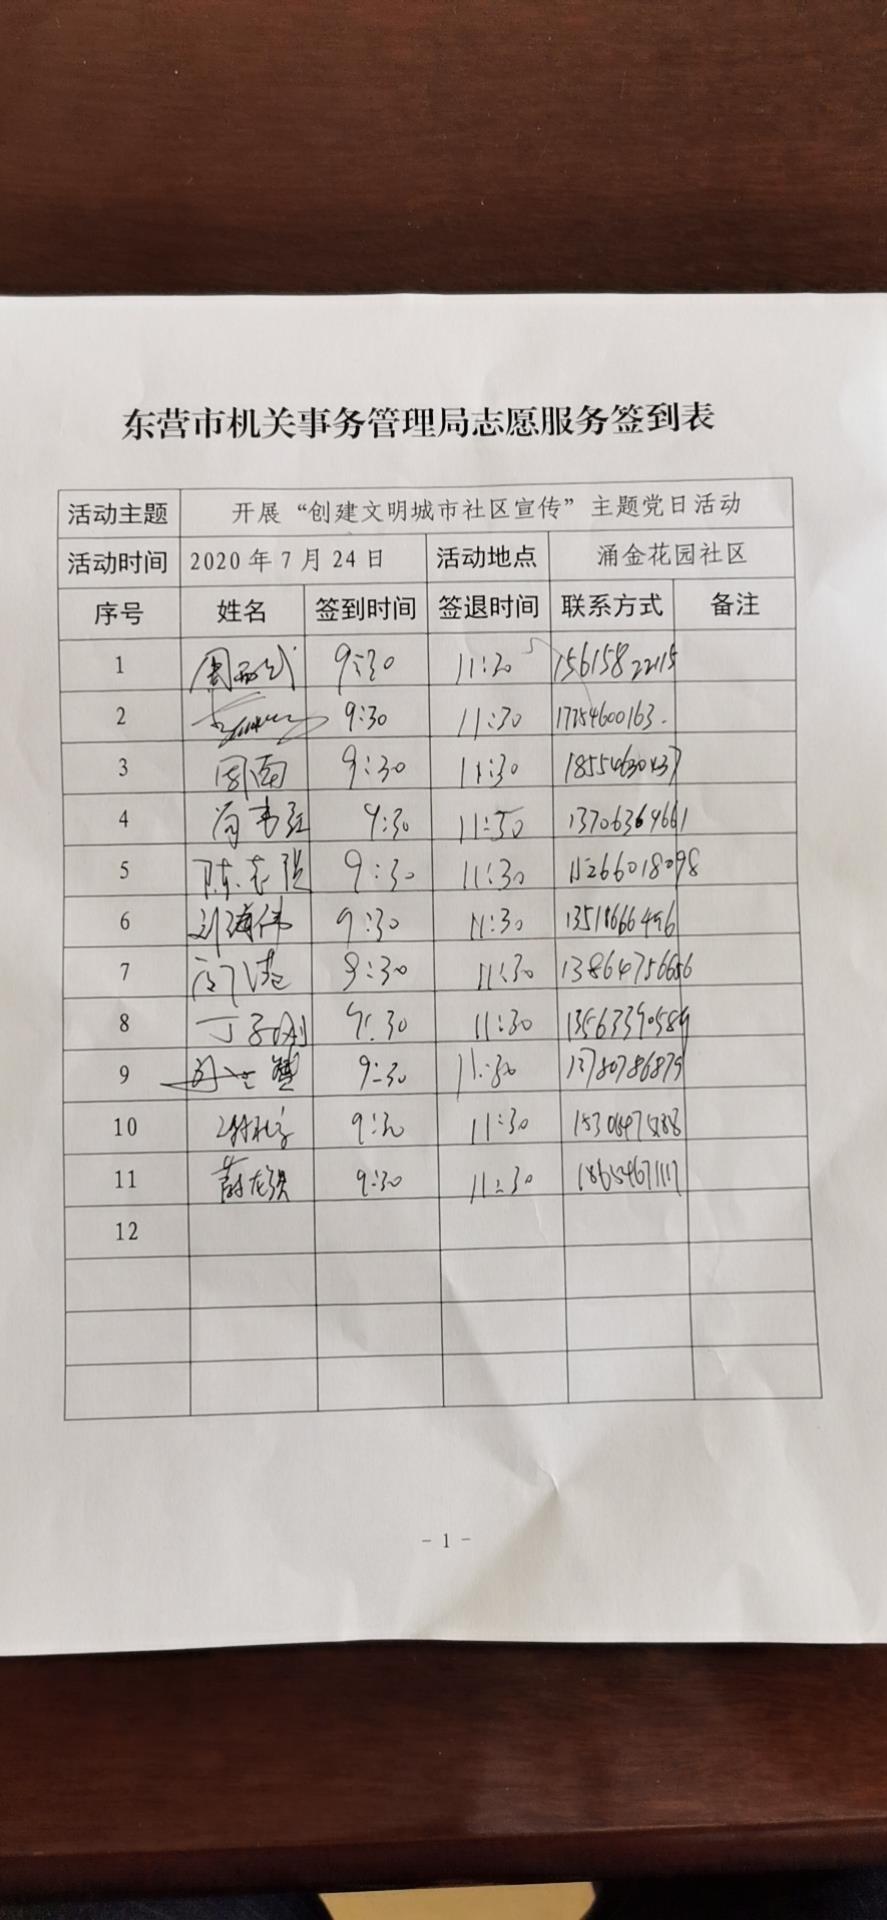 东营市机关事务管理局志愿服务签到表
活动主题 开展“创建文明城市社区宣传”主题党日活动
活动时间 2020年7月24日 活动地点 涌金花园社区
序号 姓名 签到时间 签退时间 联系方式 备注
1 9:30 11:30
2 9:30 11:30 17754600163
3 周南 9:30 11:30
4 9:30 11:30 13706364661
5 陈志强 9:30 11:30 15266018098
6 刘海伟 9:30 11:30
7 9:30 11:30 13864756656
8 丁子刚 9:30 11:30 13563390589
9 9:30 11:30 13780786879
10 9:30 11:30
11 9:30 11:30 18654671117
12
- 1 -